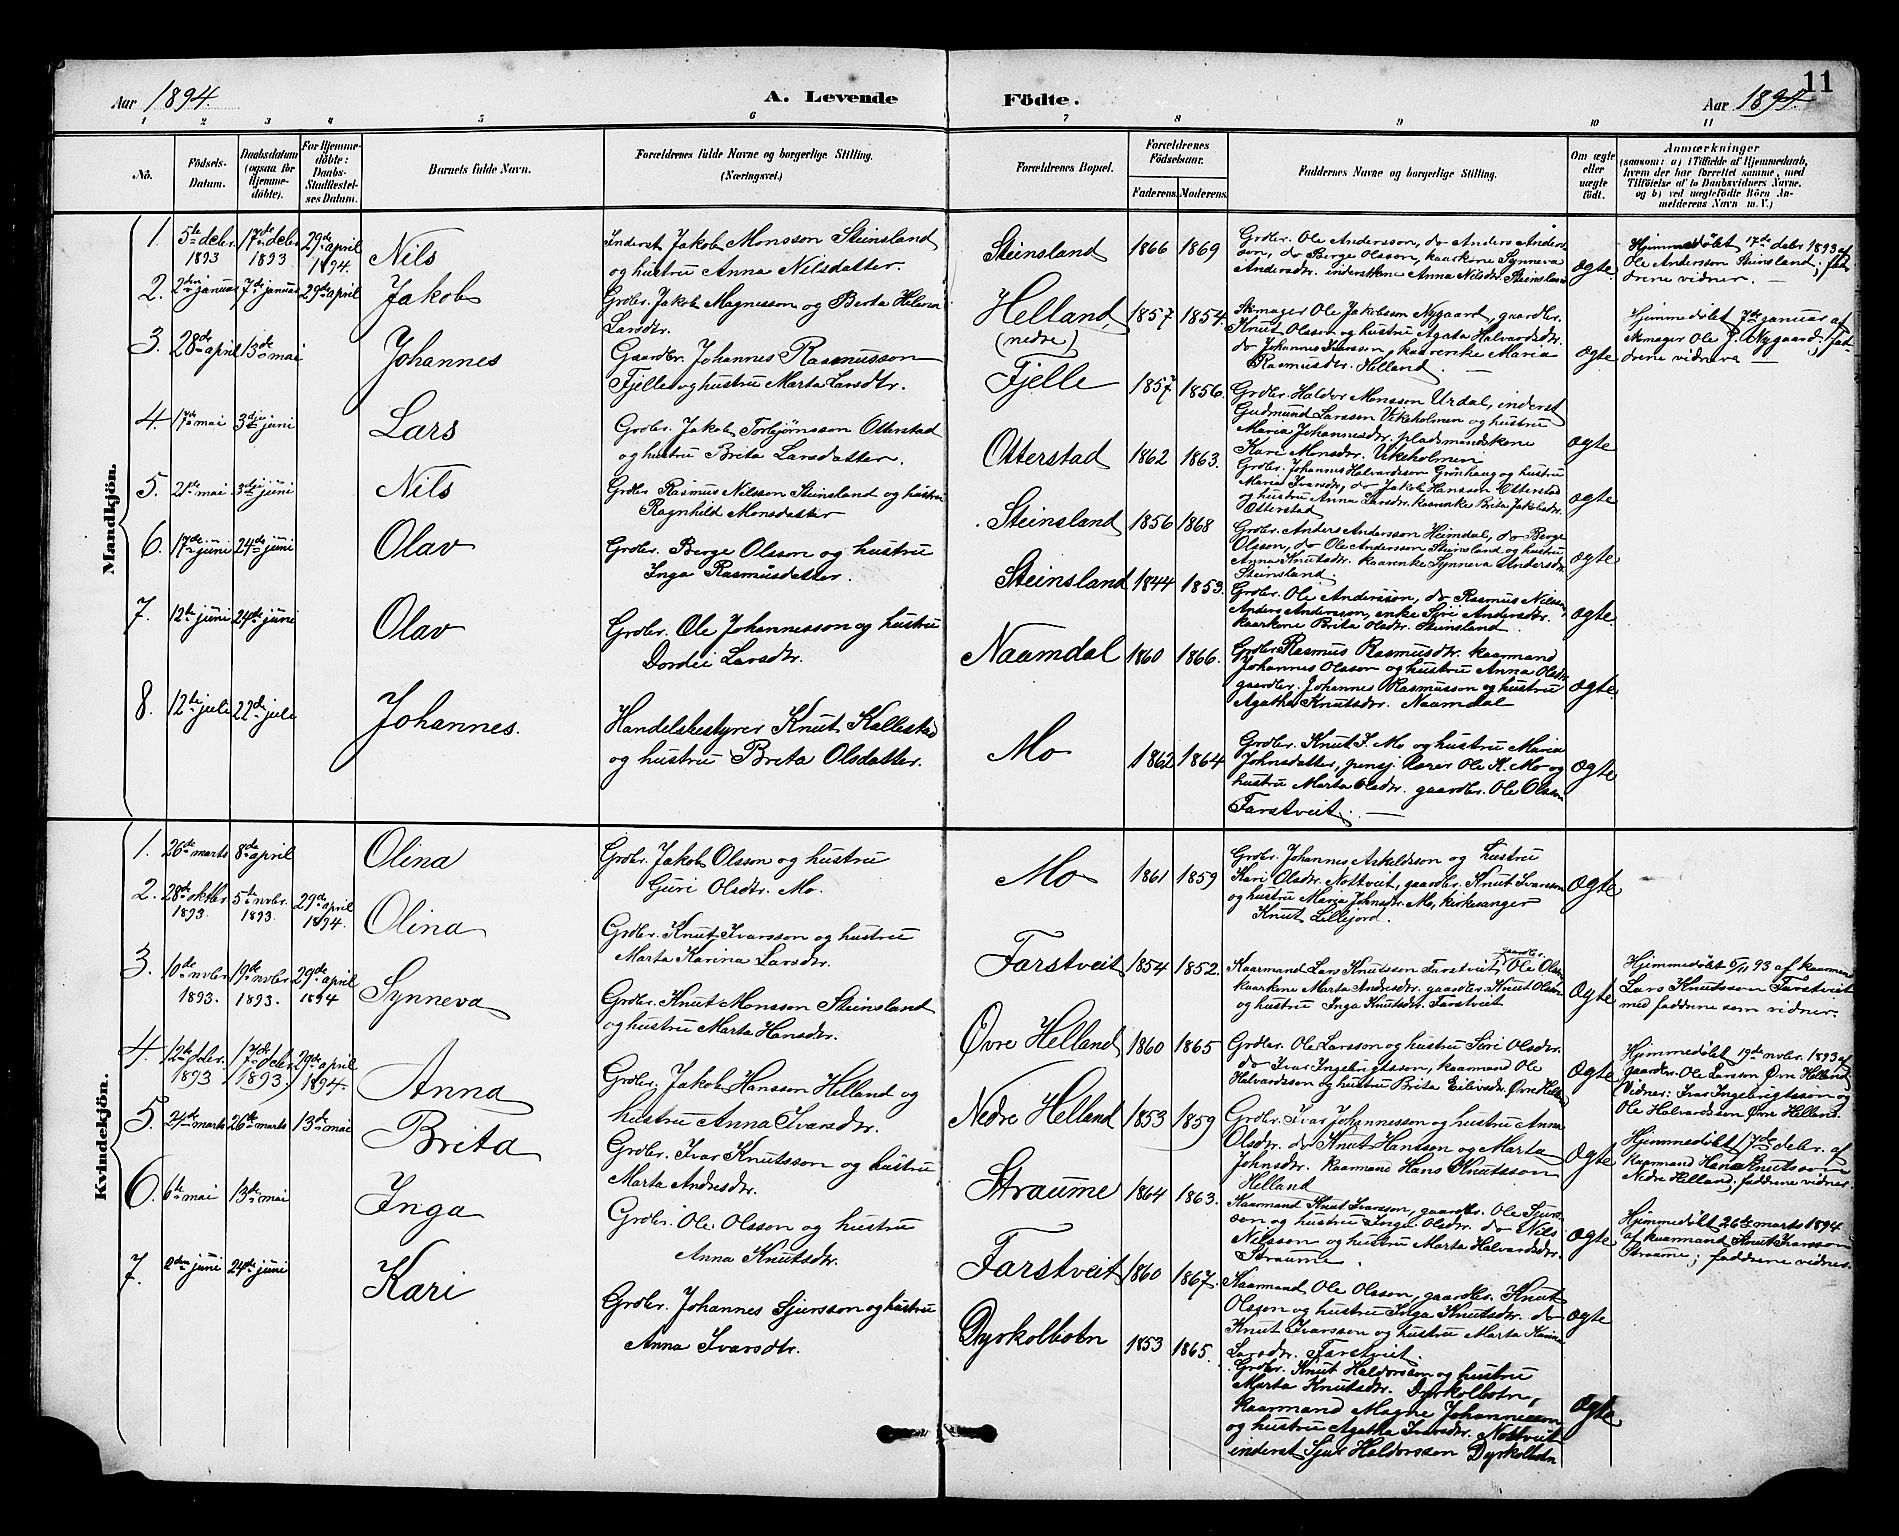 11
Aar 1894. A. Levende Födte. Aar 1894.
1 2 3 4 5 6 7 8 9 10 11
No. Födsels-Datum. Daabsdatum (ogsaa for Hjemmedöbte). For Hjemmedöbte: Daabs-Stadfæstelses Datum. Barnets fulde Navn. Forældrenes fulde Navne og borgerlige Stilling. (Næringsvei.) Forældrenes Bopæl. Forældrenes Födselsaar. Faderens. Moderens. Faddernes Navne og borgerlige Stilling. Om ægte eller uægte födt. Anmærkninger (saasom: a) i Tilfælde af Hjemmedaab, hvem der har forrettet samme, med Tilföielse af to Daabsvidners Navne, og b) ved uægtefödte Börn Anmelderens Navn m. V.)
Mandkjön.
1. 5te debr. 1893 17de debr. 1893 29de april 1894. Nils
Inderst Jakob Monsson Steinsland
og hustru Anna Nilsdatter.
Steinsland 1866 1869
Grdbr. Ole Andersson, do Anders Anders-
son, do Berge Olsson, kaarkone Synneva
Andersdtr. inderstkone Anna Nilsdtr. Steinsland
ægte.
Hjemmedøbt 17de debr 1893 af
Ole Andersson Steinsland; fad-
drene vidner. —
2. 2den januar 7de januar 29de april Jakob
Grdbr. Jakob Magnesson og Berta Helena
Larsdtr.
Helland (nedre) 1857 1854.
Skmager Ole Jakobsson Nygaard, gaardbr.
Knut Olsson og hustru Agata Halvardsdtr.
do Johannes Ivarsson, kaarenke Maria
Rasmusdtr. Helland. —
ægte
Hjemmedøbt 7de januar af
skmager Ole J. Nygaard; fad-
drene vidner —
3. 28de april 13de mai Johannes
Gaardbr. Johannes Rasmusson
Fjelle og hustru Marta Larsdtr.
Fjelle 1857 1856.
Grdbr. Haldor Monsson Urdal, inderst
Gudmund Larsson Vikeholmen og hustru
Maria Johannesdtr. pladsmandskone
Kari Monsdtr. Vikeholmen
ægte
4. 17de mai 3die juni Lars
Grdbr. Jakob Torbjørnsson Otterstad
og hustru Brita Larsdatter.
Otterstad 1862 1863.
Grdbr. Johannes Halvardsson Grønhaug og hustru
Maria Ivarsdtr, do Jakob Hansson Otterstad
og hustru Anna Larsdtr. kaarenke Brita Jakobsdtr.
Otterstad
ægte
5. 21de mai 3die juni Nils
Grdbr Rasmus Nilsson Steinsland og hustru
Ragnhild Monsdatter
Steinsland 1856 1868
Grdbr. Anders Andersson Heimdal, do Berge
Olsson, do Ole Andersson Steinsland og hustru
Anna Knutsdtr. kaarenke Synneva Andersdtr
Steinsland.
ægte
6. 17de juni 24de juni Olav
Grdbr. Berge Olsson og hustru
Inga Rasmusdatter.
Steinsland 1844 1853.
Grdbr. Ole Andersson, do Rasmus Nilsson,
Anders Andersson, enke Siri Andersdtr.
kaarkone Brita Olsdtr. Steinsland
ægte.
7. 12te juni 24de juni Olav
Grdbr. Ole Johannesson og hustru
Dordei Larsdtr.
Naamdal 1860 1866.
Grdbr. Rasmus Rasmusdtr. kaarmand
Johannes Olsson og hustru Anna Olsdtr
gaardbr. Johannes Rasmusson og hustru
Agatha Knutsdtr. Naamdal
ægte
8. 12te juli 22de juli Johannes.
Handelsbestyrer Knut Kallestad
og hustru Brita Olsdatter.
Mo 1862 1864
Grdbr. Knut J. Mo og hustru Maria
Johnsdatter, pensj. lærer Ole K. Mo og
hustru Marta Olsdtr. gaardbr. Ole Olsson
Farstveit. —
ægte
Kvindekjön.
1. 26de marts 8de april Olina
Grdbr. Jakob Olsson og hustru
Guri Olsdtr. Mo.
Mo 1861 1859
Grdbr. Johannes Askeldsson og hustru
Kari Olsdtr. Nottveit, gaardbr. Knut Ivarsson
og hustru Maria Johnsdtr Mo, kirkesanger
Knut Lillejord.
ægte
2. 28de oktbr 1893. 5te novbr. 1893. 29de april 1894. Olina
Grdbr. Knut Ivarsson og hustru
Marta Karina Larsdtr.
Farstveit 1854 1852.
Kaarmand Lars Knutsson Farstveit, gaardbr. Ole Olsson
kaarkone Marta Andersdtr. gaardbr. Knut Olsson
og hustru Inga Knutsdtr. Farstveit
ægte
Hjemmedøbt 5/11 93 af kaarmand
Lars Knutsson Farstveit
med faddrene som vidner.
3. 10de novbr. 1893. 19de novbr. 1893. 29de april 1894 Synneva
Grdbr. Knut Monsson Steinsland
og hustru Marta Hansdtr.
Øvre Helland 1860 1865
Grdbr. Ole Larsson og hustru Siri Olsdtr.
do Ivar Ingebrigtsson, kaarmand Ole
Halvardsson og hustru Brita Eilivsdtr. Øvre Helland
ægte
Hjemmedøbt 19de novbr. 1893 af
gaardbr. Ole Larsson Øvre Helland
(vidner: Ivar Ingebrigtsson og
Ole Halvardsson Øvre Helland.
4. 12te debr. 1893 17de debr. (1893) 29de april 1894. Anna
Grdbr. Jakob Hansson Helland og
hustru Anna Ivarsdtr.
Nedre Helland 1853 1859
Grdbr. Ivar Johannesson og hustru Anna
Olsdtr. do Knut Hansson og Marta
Johnsdtr. kaarmand Hans Knutsson
Helland
ægte
Hjemmedøbt 17de debr. af
kaarmand Hans Knutsson
Nedre Helland; faddrene vidner.
5. 24de marts 26te marts 13de mai Brita
Grdbr. Ivar Knutsson og hustru
Marta Andersdtr.
Straume 1864 1863.
Kaarmand Knut Ivarsson, gaardbr. Ole Sjurs-
son og hustru Inga Olsdtr. do Nils
Nilsson og hustru Marta Halvardsdtr.
Straume.
ægte
Hjemmedøbt 26te marts 1894
af kaarmand Knut Ivarsson
Straume; faddrene vidner.
6. 6te mai 13de mai Inga
Grdbr. Ole Olsson og hustru
Anna Knutsdtr.
Farstveit 1860 1867.
Kaarmand Ole Olsson, gaardbr. Knut
Olsson og hustru Inga Knutsdtr. do
Knut Ivarsson og hustru Marta Karina
Larsdtr. Farstveit.
ægte
7. 2den juni 24de juni Kari
Grdbr. Johannes Sjursson og hustru
Anna Ivarsdtr.
Dyrkolbotn 1853 1865.
Grdbr. Knut Haldorsson og hustru
Marta Knutsdtr. Dyrkolbotn,
kaarmand Magne Johannesson
og hustru Agatha Ivarsdtr. Nottveit
inderst Sjur Haldorsson Dyrkolbotn
ægte